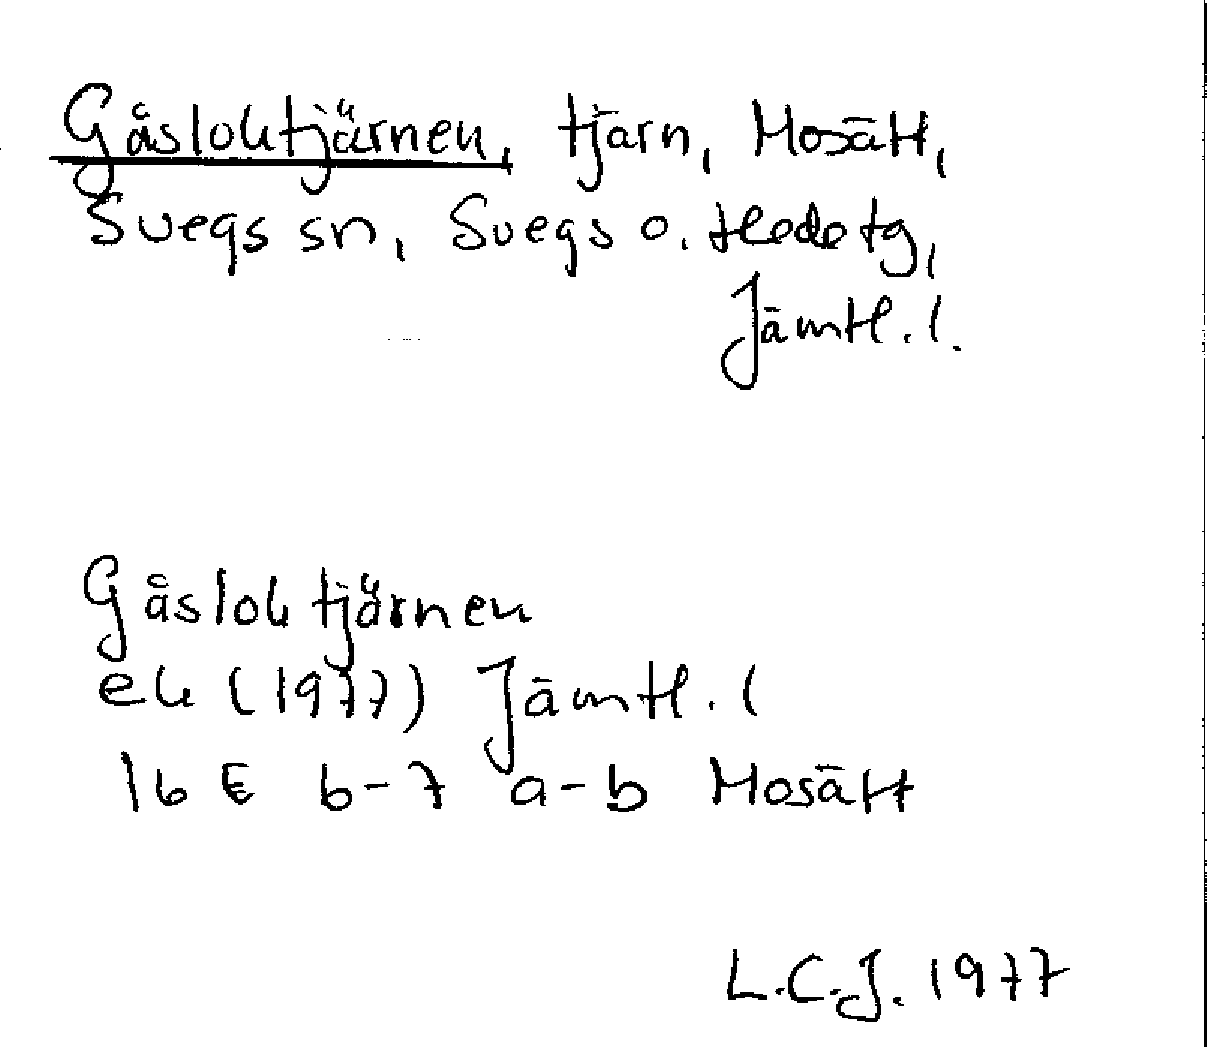 Gåsloktjärnen, tjärn, Mosätt,
Svegs sn, Svegs o. Hede tg,
Jämtl. l.
Gåsloktjärnen
ek (1977) Jämtl. l
16 E b-7 a-b Mosätt
L.C.J. 1977